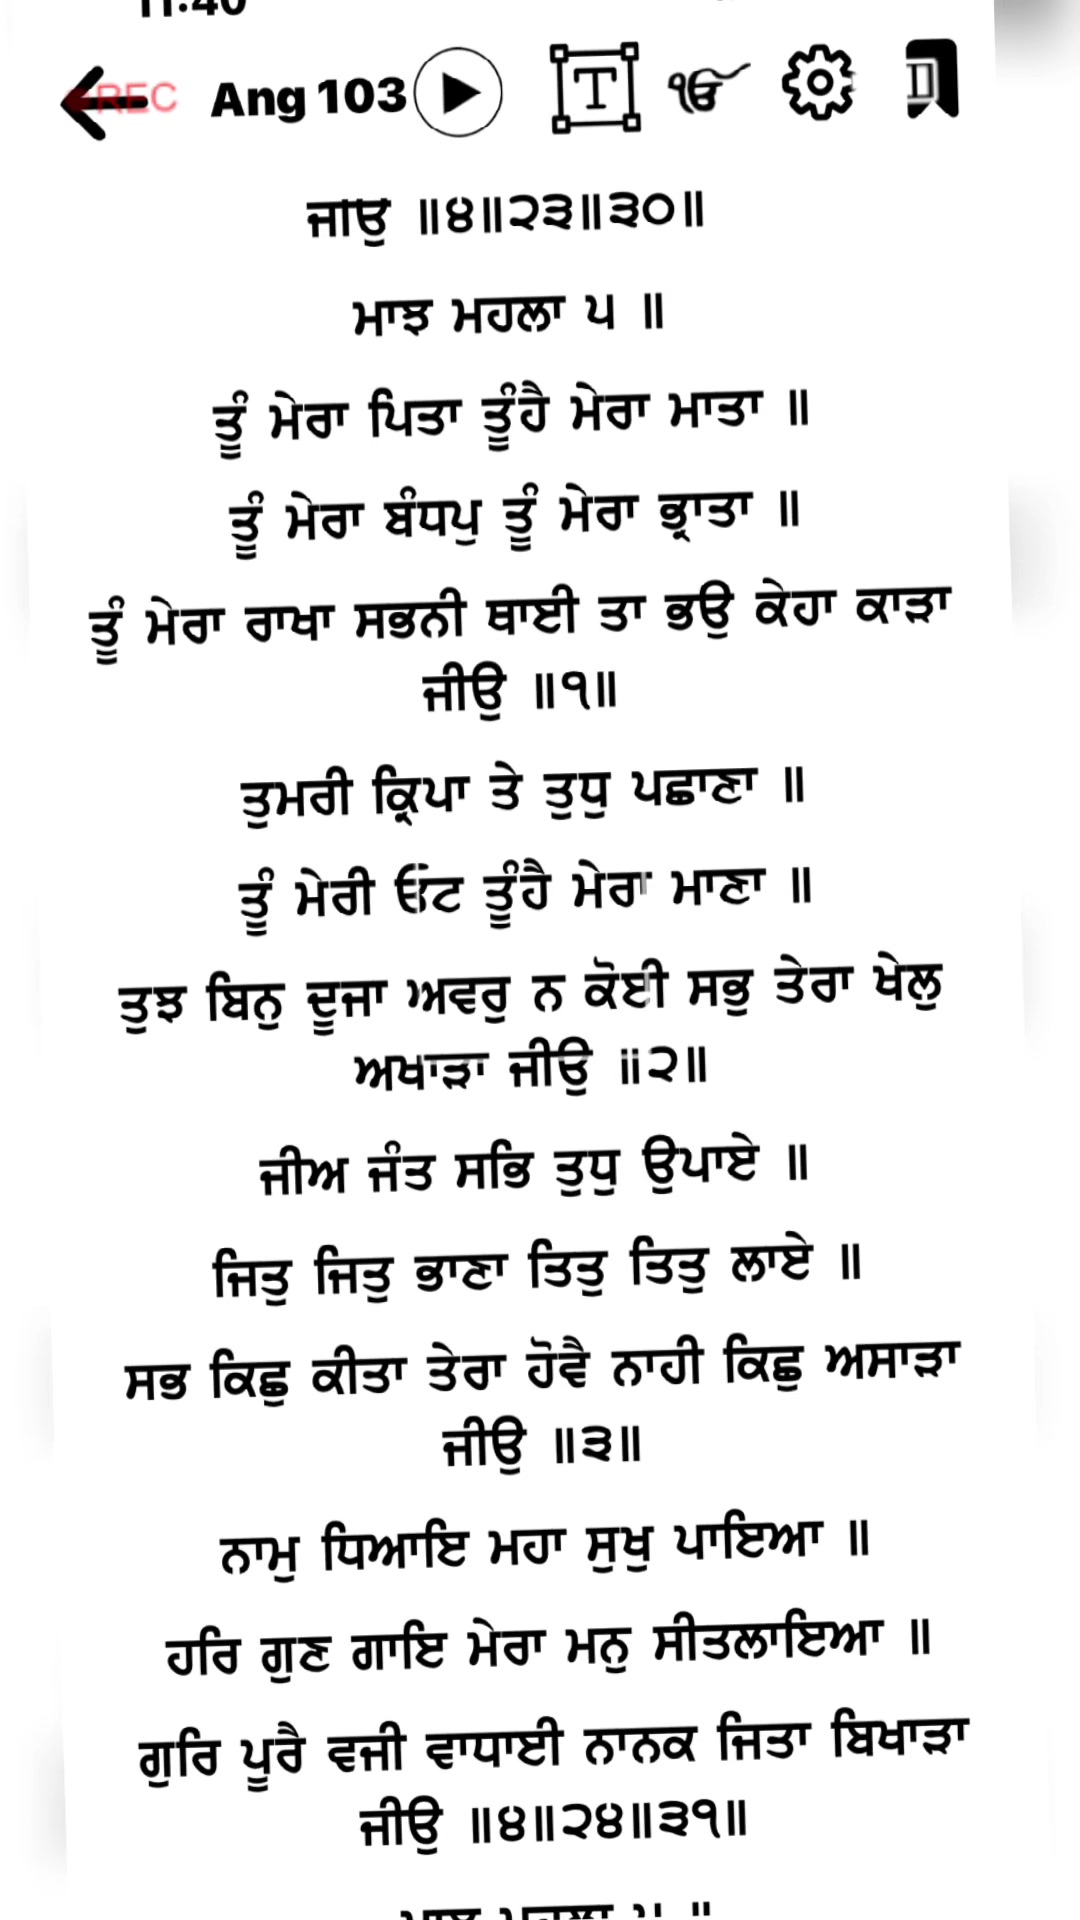 11:40
REC Ang 103
ਜੀਉ ॥੪॥੨੩॥੩੦॥
ਮਾਝ ਮਹਲਾ ੫ ॥
ਤੂੰ ਮੇਰਾ ਪਿਤਾ ਤੂੰਹੈ ਮੇਰਾ ਮਾਤਾ ॥
ਤੂੰ ਮੇਰਾ ਬੰਧਪੁ ਤੂੰ ਮੇਰਾ ਭ੍ਰਾਤਾ ॥
ਤੂੰ ਮੇਰਾ ਰਾਖਾ ਸਭਨੀ ਥਾਈ ਤਾ ਭਉ ਕੇਹਾ ਕਾੜਾ
ਜੀਉ ॥੧॥
ਤੁਮਰੀ ਕ੍ਰਿਪਾ ਤੇ ਤੁਧੁ ਪਛਾਣਾ ॥
ਤੂੰ ਮੇਰੀ ਓਟ ਤੂੰਹੈ ਮੇਰਾ ਮਾਣਾ ॥
ਤੁਝ ਬਿਨੁ ਦੂਜਾ ਅਵਰੁ ਨ ਕੋਈ ਸਭੁ ਤੇਰਾ ਖੇਲੁ
ਅਖਾੜਾ ਜੀਉ ॥੨॥
ਜੀਅ ਜੰਤ ਸਭਿ ਤੁਧੁ ਉਪਾਏ ॥
ਜਿਤੁ ਜਿਤੁ ਭਾਣਾ ਤਿਤੁ ਤਿਤੁ ਲਾਏ ॥
ਸਭ ਕਿਛੁ ਕੀਤਾ ਤੇਰਾ ਹੋਵੈ ਨਾਹੀ ਕਿਛੁ ਅਸਾੜਾ
ਜੀਉ ॥੩॥
ਨਾਮੁ ਧਿਆਇ ਮਹਾ ਸੁਖੁ ਪਾਇਆ ॥
ਹਰਿ ਗੁਣ ਗਾਇ ਮੇਰਾ ਮਨੁ ਸੀਤਲਾਇਆ ॥
ਗੁਰਿ ਪੂਰੈ ਵਜੀ ਵਾਧਾਈ ਨਾਨਕ ਜਿਤਾ ਬਿਖਾੜਾ
ਜੀਉ ॥੪॥੨੪॥੩੧॥
ਮਾਝ ਮਹਲਾ ੫ ॥